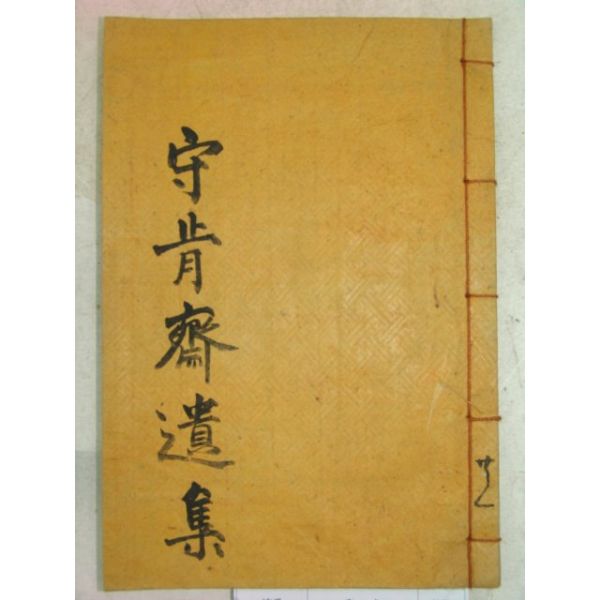 守肯齋遺集
共